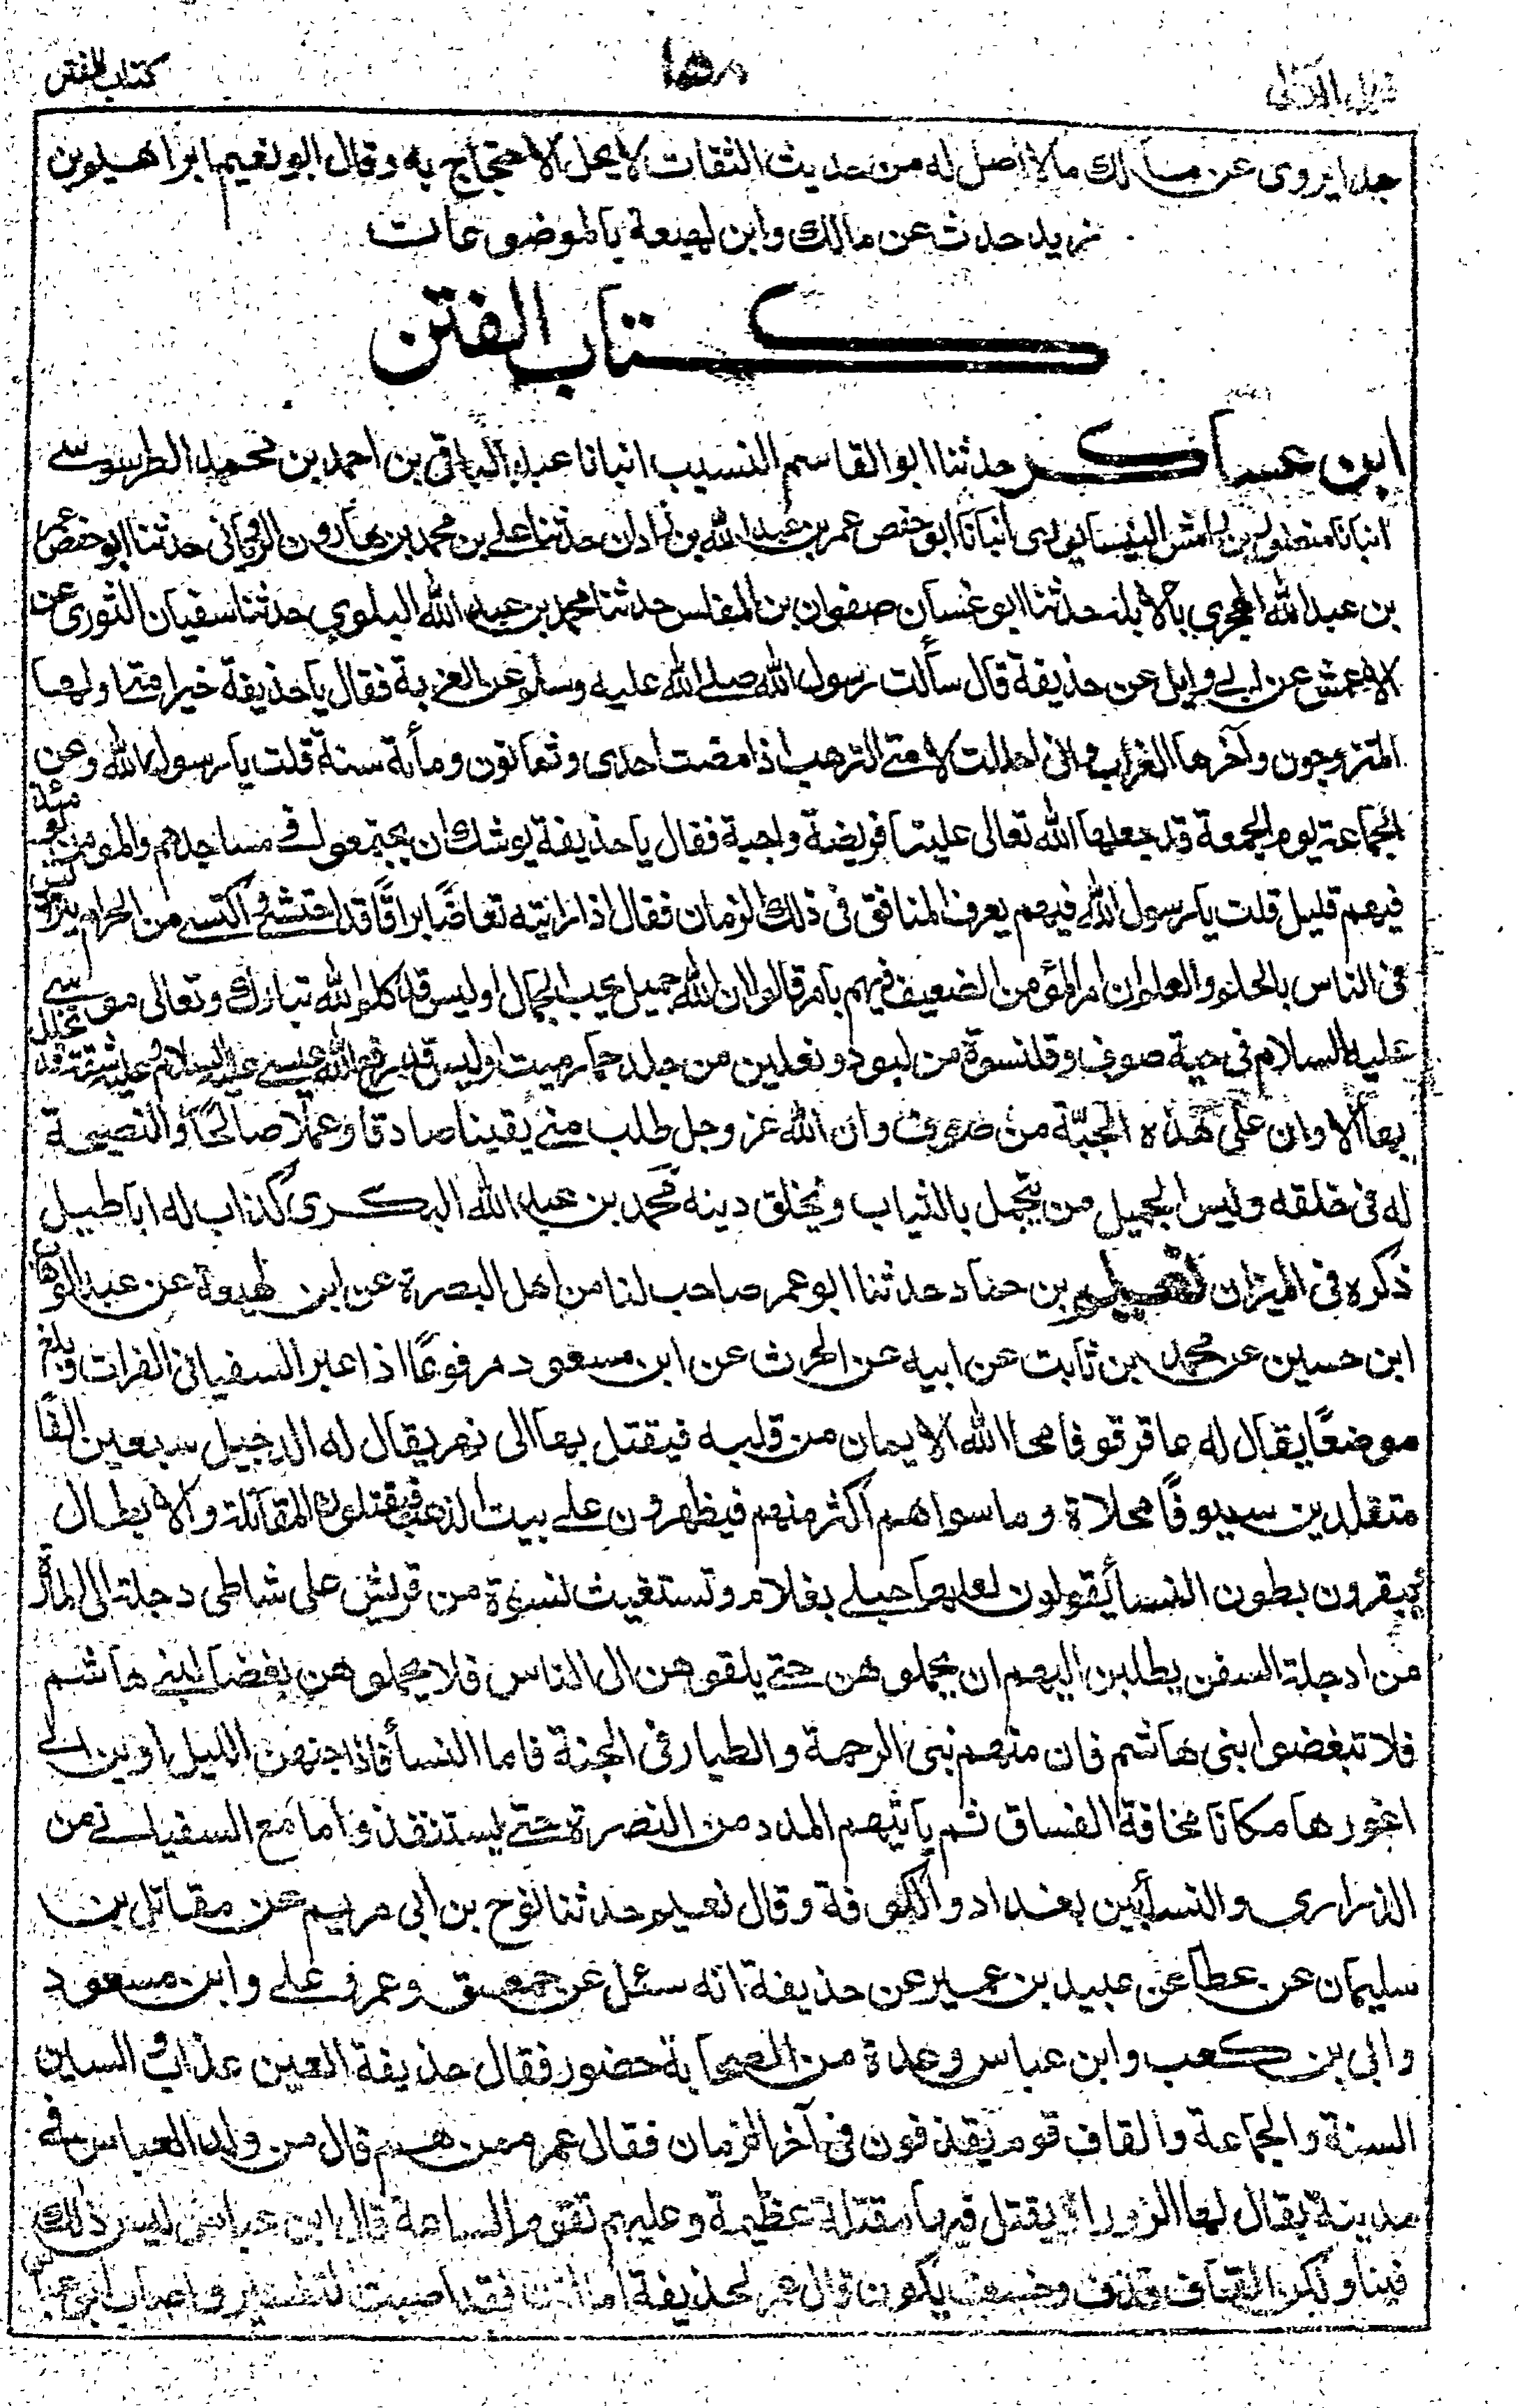 كتاب الفتن
١٥٨
ذيل اللآلى
جدا يروى عن مالك مالا اصل له من حديث الثقات لا يحل الاحتجاج به وقال ابو نعيم ابراهيم بن
زيد حدث عن مالك وابن لهيعة بالموضوعات
كتاب الفتن
ابن عساكر حدثنا ابو القاسم النسيب انبانا عبد الباقى بن احمد بن محمد الطرسوسے
انبانا منصور بن رامش النيسابورى انبانا ابو حفص عمر بن عبد الله بن زاذان حدثنا على بن محمد بن هارون حدثنا ابو حفص عمر
بن عبد الله الهجرى بالابلة حدثنا ابو غسان صفوان بن المفلس حدثنا محمد بن عبد الله البلوي حدثنا سفيان الثورى عن
الاعمش عن ابے وايل عن حذيفة قال سألت رسول الله صلے الله عليه وسلم عن العزبة فقال يا حذيفة خير امتے اولها
المتزوجون وآخرها العزاب وانى احللت لامتے الترهب اذا مضت احدى وثمانون ومأية سنة قلت يا رسول الله وعن
الجماعة يوم الجمعة قد جعلها الله تعالى علينا فريضة واجبة فقال يا حذيفة يوشك ان يجتمعوا فے مساجدهم والمومن
فيهم قليل قلت يا رسول الله فيهم يعرف المنافق فى ذلك الزمان فقال اذا رايته براقا قد اكتسے من الحرام
فى الناس بالحلم والعلم ان امر المؤمن الضعيف فيهم بامر قالوا ان الله جميل يحب الجمال اوليس قد كلم الله تبارك وتعالى موسے
عليه السلام فى جبة صوف وقلنسوة من لبود ونعلين من جلد حمار ميت اوليس قد رفع الله عيسے عليه السلام وعليه شقة قد تخلل
بها الا وان علّى هذه الجبّة من صوف وان الله عز وجل طلب منے يقينا صادقا وعملا صالحًا والنصيحة
له فى خلقه وليس الجميل من يتجمل بالثياب ويخلق دينه محمد بن عبد الله البكرى كذاب له اباطيل
ذكره فى الميزان نعيم بن حماد حدثنا ابو عمر صاحب لنا من اهل البصرة عن ابن لهيعة عن عبد الوهاب
ابن حسين عن محمد بن ثابت عن ابيه عن الحرث عن ابن مسعود مرفوعًا اذا عبر السفيانى الفرات وبلغ
موضعًا يقال له عاقرقوفا محا الله الايمان من قلبه فيقتل بها الى نهر يقال له الدجيل سبعين الفًا
متقلدين سيوفًا محلاة وما سواهم اكثر منهم فيظهرون علے بيت الذهب فيقتلون المقاتلة والابطال
يبقرون بطون النسأ يقولون لعلها حبلے بغلام وتستغيث نسوة من قريش على شاطى دجلة الى المارة
من ادجلة السفن يطلبن اليهم ان يحملوهن حتے يلقوهن الى الناس فلا يحملوهن بغضا لبنے هاشم
فلا تبغضوا بنى هاشم فان منهم نبى الرحمة والطيار فى الجنة فاما النسأ فاذا جنهن الليل اوين الے
اغورها مكانا مخافة الفساق ثم ياتيهم المدد من النصرة حتے يستنقذوا ما مع السفيانے من
الذرارى والنسأ بين بغداد والكوفة وقال نعيم حدثنا نوح بن ابى مريم عن مقاتل بن
سليمان عن عطا عن عبيد بن عمير عن حذيفة انه سئل عن حمعسق وعمر وعلے وابن مسعود
وابى بن كعب وابن عباس وعدة من الصحابة حضور فقال حذيفة العين عذاب والسين
السنة والجماعة والقاف قوم يقذفون فى آخر الزمان فقال عمر ممن هم قال من ولد العباس فے
مدينة يقال لها الزوراء يقتل فيها مقتلة عظيمة وعليهم تقوم الساعة قال ابن عباس ليس ذلك
فينا ولكن القاف قذف وخسف يكون قال عمر لحذيفة اما انت فقد اصبت التفسير واصاب ابن عباس